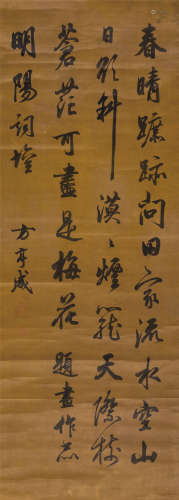 春晴蹤跡問田家流水空山
日欲斜漠々煙籠天際樹
蒼茫可盡是梅花 題畫作示
明陽詞壇
方亨咸